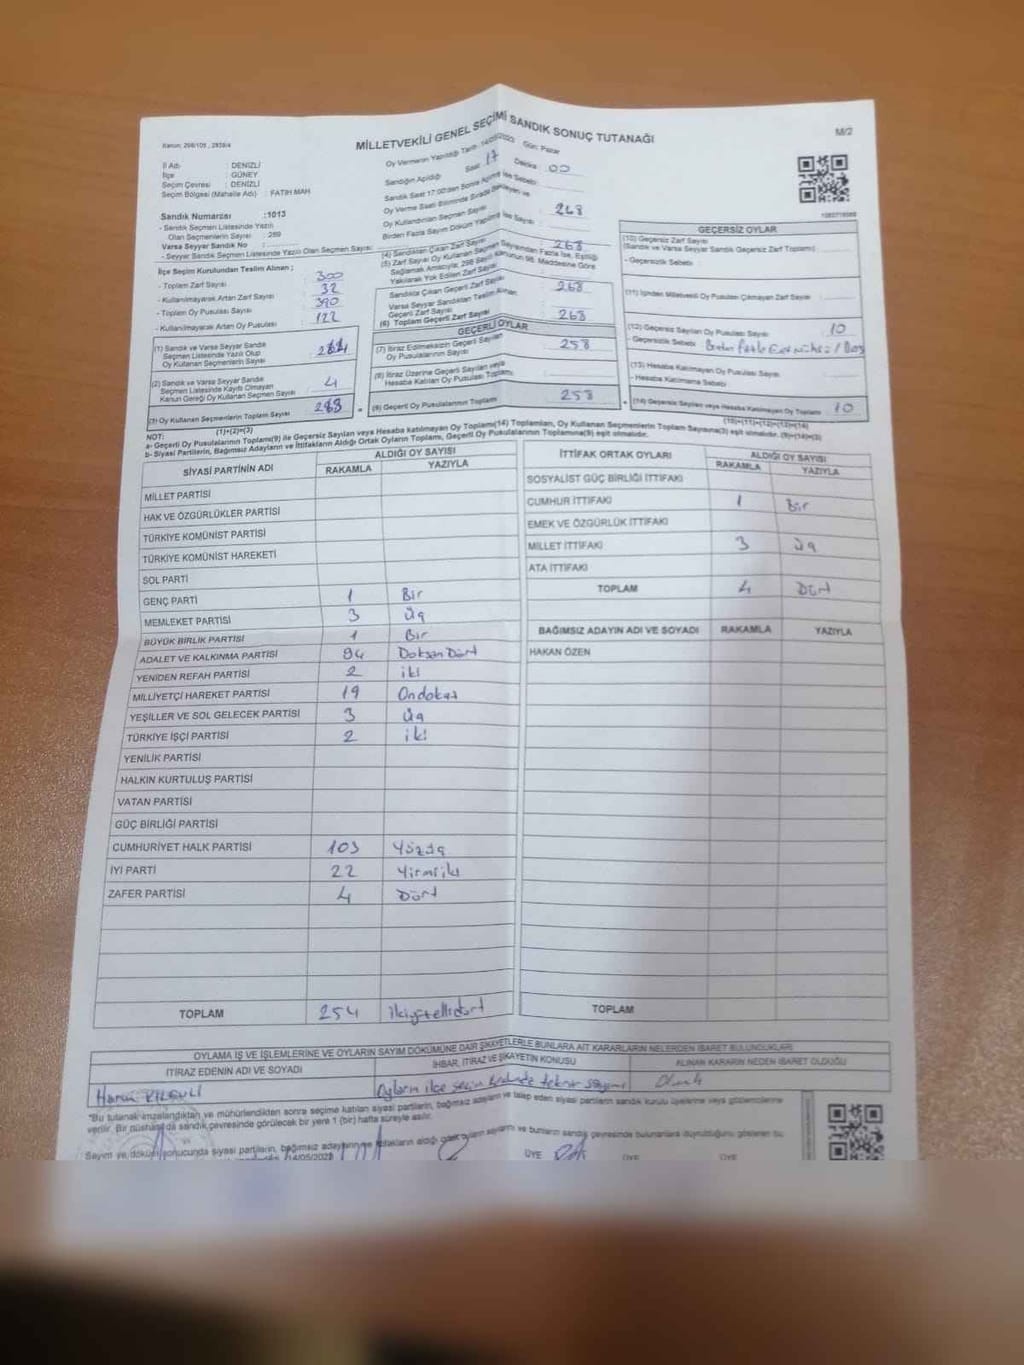 Kanun: 298/105 , 2839/4
MİLLETVEKİLİ GENEL SEÇİMİ SANDIK SONUÇ TUTANAĞI
M/2
İl Adı : DENİZLİ
İlçe : GÜNEY
Seçim Çevresi : DENİZLİ
Seçim Bölgesi (Mahalle Adı) : FATİH MAH
Sandık Numarası :1013
- Sandık Seçmen Listesinde Yazılı
Olan Seçmenlerin Sayısı : 289
Varsa Seyyar Sandık No :
- Seyyar Sandık Seçmen Listesinde Yazılı Olan Seçmen Sayısı:
İlçe Seçim Kurulundan Teslim Alınan ;
- Toplam Zarf Sayısı : 300
- Kullanılmayarak Artan Zarf Sayısı : 32
- Toplam Oy Pusulası Sayısı : 390
- Kullanılmayarak Artan Oy Pusulası : 122
(1) Sandık ve Varsa Seyyar Sandık
Seçmen Listesinde Yazılı Olup
Oy Kullanan Seçmenlerin Sayısı :
(2) Sandık ve Varsa Seyyar Sandık
Seçmen Listesinde Kayıtlı Olmayan
Kanun Gereği Oy Kullanan Seçmen Sayısı : 4
(3) Oy Kullanan Seçmenlerin Toplam Sayısı
(1)+(2)=(3)
Oy Vermenin Yapıldığı Tarih :14/05/2023 Gün: Pazar
Sandığın Açıldığı Saat : 17 Dakika : 00
Sandık Saat 17:00'den Sonra Açılmış ise Sebebi:
Oy Verme Saati Bitiminde Sırada Bekleyen ve
Oy Kullandırılan Seçmen Sayısı :
Birden Fazla Sayım Döküm Yapılmış ise Sayısı :
268
(4) Sandıktan Çıkan Zarf Sayısı : 268
(5) Zarf Sayısı Oy Kullanan Seçmen Sayısından Fazla ise, Eşitliği
Sağlamak Amacıyla; 298 Sayılı Kanunun 98. Maddesine Göre
Yakılarak Yok Edilen Zarf Sayısı :
Sandıkta Çıkan Geçerli Zarf Sayısı : 268
Varsa Seyyar Sandıktan Teslim Alınan
Geçerli Zarf Sayısı :
(6) Toplam Geçerli Zarf Sayısı : 268
GEÇERLİ OYLAR
(7) İtiraz Edilmeksizin Geçerli Sayılan
Oy Pusulalarının Sayısı : 258
(8) İtiraz Üzerine Geçerli Sayılan veya
Hesaba Katılan Oy Pusulası Toplamı :
(9) Geçerli Oy Pusulalarının Toplamı : 258
GEÇERSİZ OYLAR
(10) Geçersiz Zarf Sayısı
(Sandık ve Varsa Seyyar Sandık Geçersiz Zarf Toplamı) :
- Geçersizlik Sebebi :
(11) İçinden Milletvekili Oy Pusulası Çıkmayan Zarf Sayısı :
(12) Geçersiz Sayılan Oy Pusulası Sayısı : 10
- Geçersizlik Sebebi :
(13) Hesaba Katılmayan Oy Pusulası Sayısı :
- Hesaba Katılmama Sebebi :
(14) Geçersiz Sayılan veya Hesaba Katılmayan Oy Toplamı : 10
(10)+(11)+(12)+(13)=(14)
NOT:
a- Geçerli Oy Pusulalarının Toplamı(9) ile Geçersiz Sayılan veya Hesaba katılmayan Oy Toplamı(14) Toplamları, Oy Kullanan Seçmenlerin Toplam Sayısına(3) eşit olmalıdır. (9)+(14)=(3)
b- Siyasi Partilerin, Bağımsız Adayların ve İttifakların Aldığı Ortak Oyların Toplamı, Geçerli Oy Pusulalarının Toplamına(9) eşit olmalıdır.
SİYASİ PARTİNİN ADI ALDIĞI OY SAYISI
RAKAMLA YAZIYLA
MİLLET PARTİSİ
HAK VE ÖZGÜRLÜKLER PARTİSİ
TÜRKİYE KOMÜNİST PARTİSİ
TÜRKİYE KOMÜNİST HAREKETİ
SOL PARTİ
GENÇ PARTİ 1 Bir
MEMLEKET PARTİSİ 3 üç
BÜYÜK BİRLİK PARTİSİ 1 Bir
ADALET VE KALKINMA PARTİSİ 94 Doksan Dört
YENİDEN REFAH PARTİSİ 2 iki
MİLLİYETÇİ HAREKET PARTİSİ 19 Ondokuz
YEŞİLLER VE SOL GELECEK PARTİSİ 3 üç
TÜRKİYE İŞÇİ PARTİSİ 2 iki
YENİLİK PARTİSİ
HALKIN KURTULUŞ PARTİSİ
VATAN PARTİSİ
GÜÇ BİRLİĞİ PARTİSİ
CUMHURİYET HALK PARTİSİ 103 Yüzüç
İYİ PARTİ 22 Yirmiiki
ZAFER PARTİSİ 4 Dört
TOPLAM 254 ikiyüzellidört
İTTİFAK ORTAK OYLARI ALDIĞI OY SAYISI
RAKAMLA YAZIYLA
SOSYALİST GÜÇ BİRLİĞİ İTTİFAKI
CUMHUR İTTİFAKI 1 Bir
EMEK VE ÖZGÜRLÜK İTTİFAKI
MİLLET İTTİFAKI 3 üç
ATA İTTİFAKI
TOPLAM 4 Dört
BAĞIMSIZ ADAYIN ADI VE SOYADI RAKAMLA YAZIYLA
HAKAN ÖZEN
TOPLAM
OYLAMA İŞ VE İŞLEMLERİNE VE OYLARIN SAYIM DÖKÜMÜNE DAİR ŞİKAYETLERLE BUNLARA AİT KARARLARIN NELERDEN İBARET BULUNDUKLARI
İTİRAZ EDENİN ADI VE SOYADI İHBAR, İTİRAZ VE ŞİKAYETİN KONUSU ALINAN KARARIN NEDEN İBARET OLDUĞU
Oyların ilçe seçim tekrar sayımı
*Bu tutanak imzalandıktan ve mühürlendikten sonra seçime katılan siyasi partilerin, bağımsız adayların ve talep eden siyasi partilerin sandık kurulu üyelerine veya gözlemcilerine
verilir. Bir nüshası da sandık çevresinde görülecek bir yere 1 (bir) hafta süreyle asılır.
Sayım ve döküm sonucunda siyasi partilerin, bağımsız adayların ve ittifakların aldığı
14/05/2023 ÜYE ÜYE ÜYE